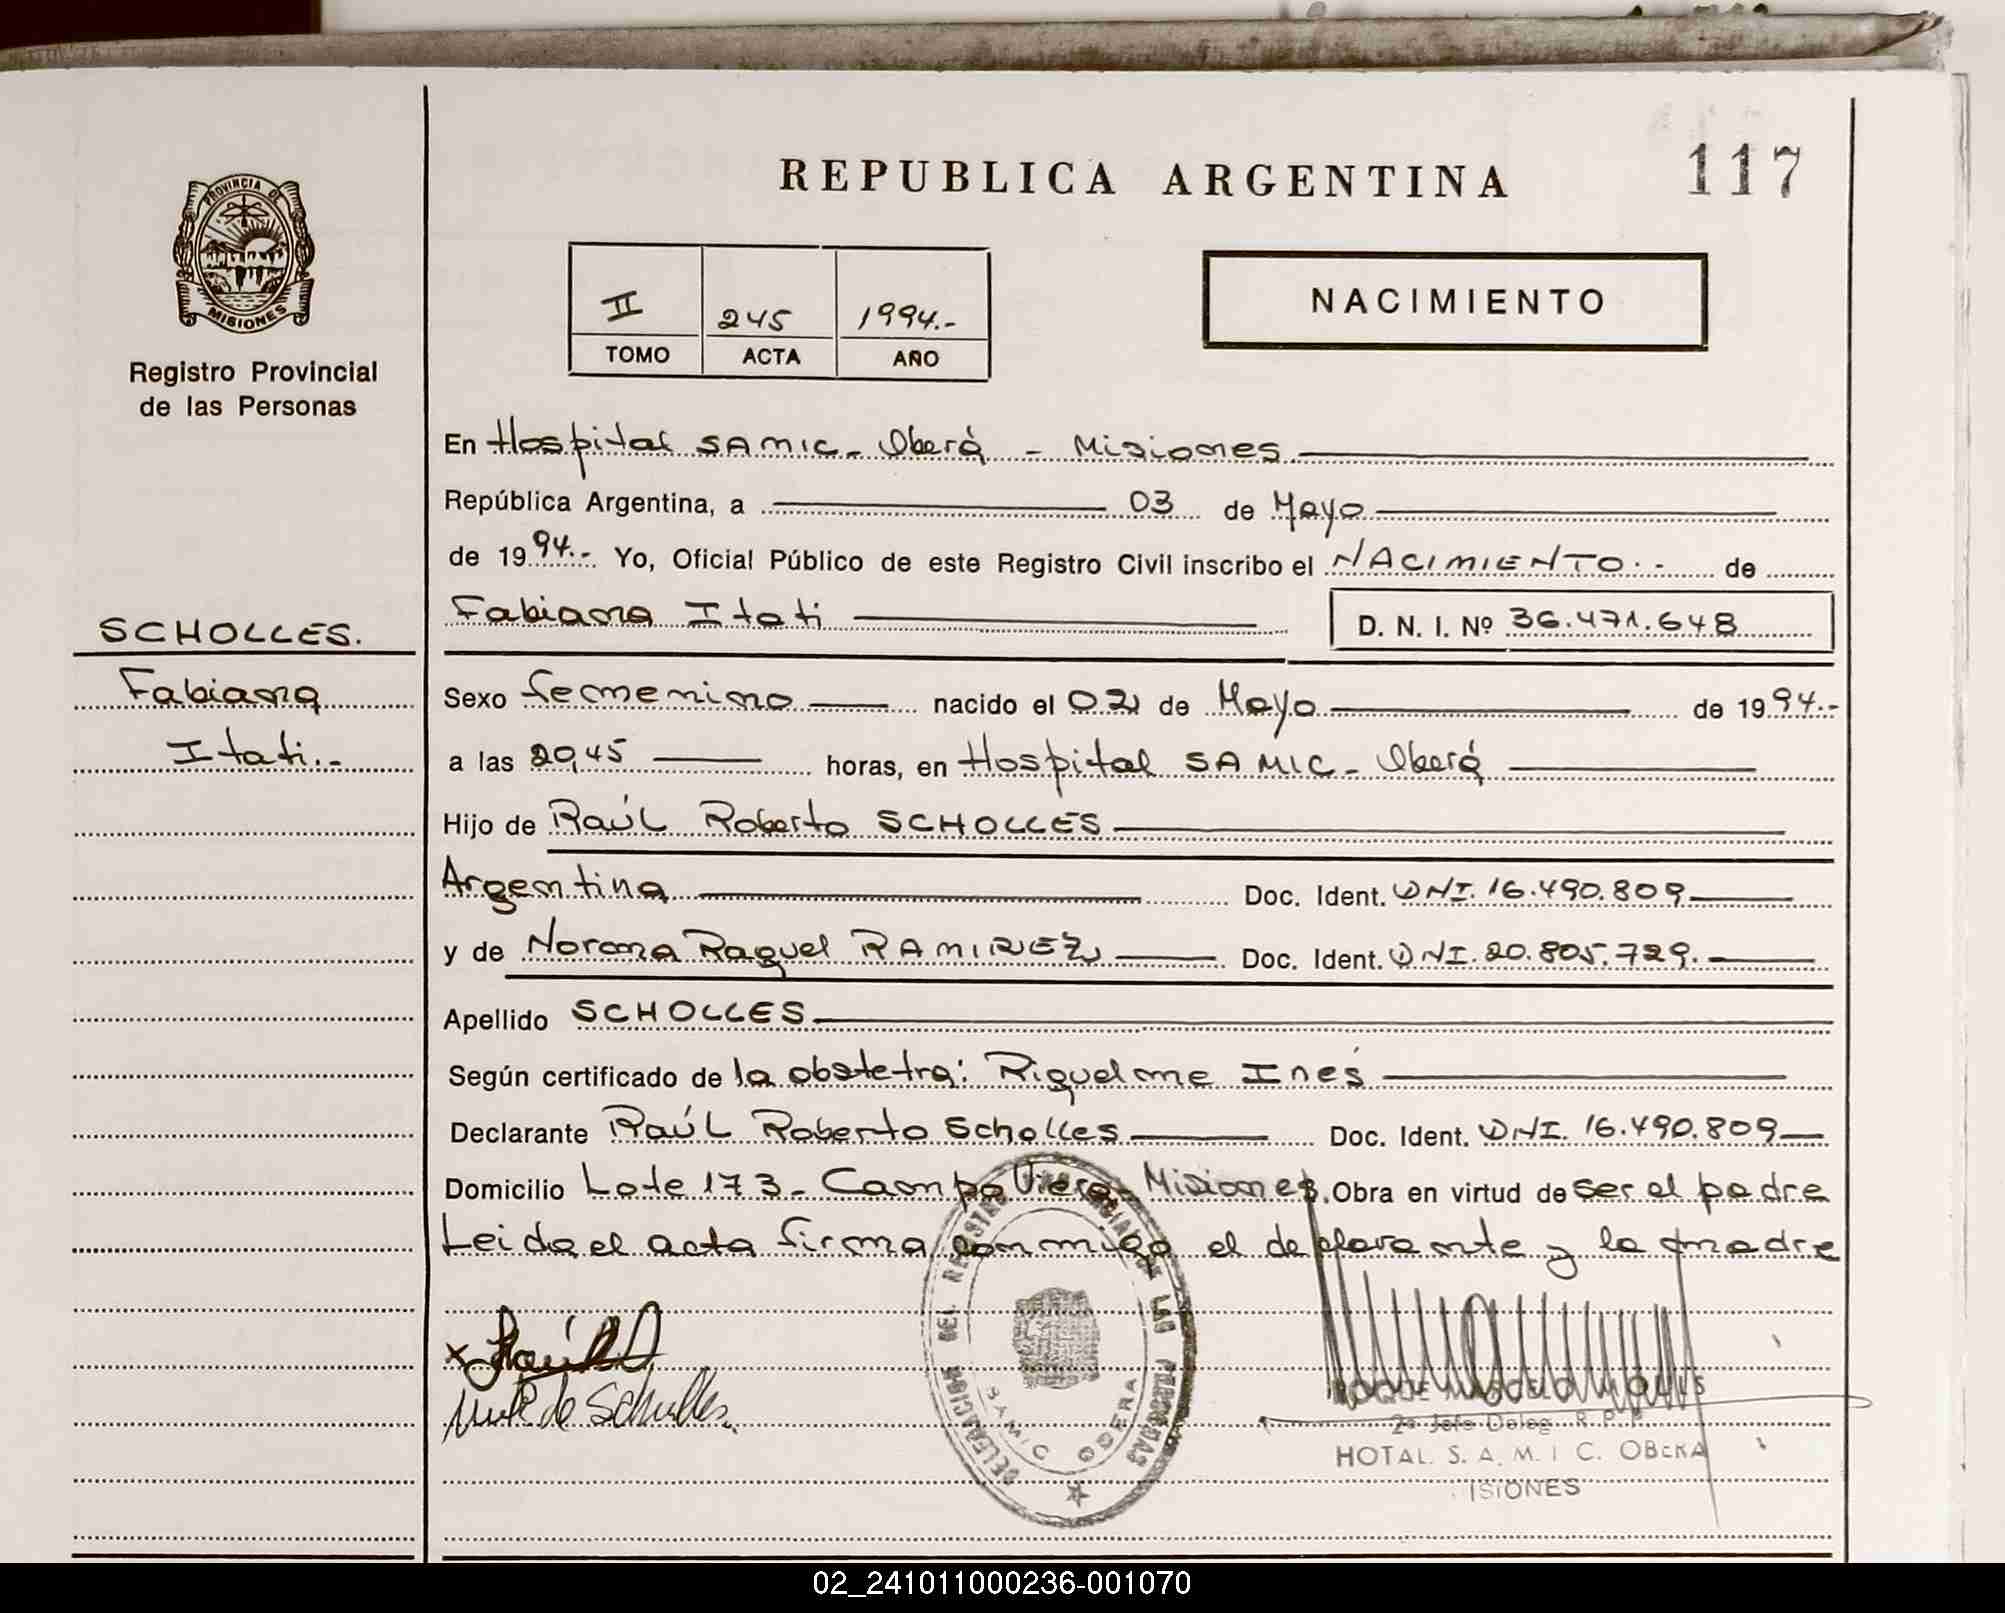 REPUBLICA ARGENTINA
117
PROVINCIA DE
MISIONES
Registro Provincial
de las Personas
II 245 1994.-
TOMO ACTA AÑO
NACIMIENTO
En Hospital SAMIC - Oberá - Misiones
República Argentina, a 03 de Mayo
de 1994.- Yo, Oficial Público de este Registro Civil inscribo el NACIMIENTO.- de
Fabiana Itati D. N. I. Nº 36.471.648
SCHOLLES.
Fabiana
Itati.-
Sexo femenino nacido el 02 de Mayo de 1994.-
a las 20,45 horas, en Hospital SAMIC - Oberá
Hijo de Raúl Roberto SCHOLLES
Argentina Doc. Ident. DNI. 16.490.809
y de Norma Raquel RAMIREZ Doc. Ident. DNI. 20.805.729.
Apellido SCHOLLES
Según certificado de la obstetra: Riquelme Inés
Declarante Raúl Roberto Scholles Doc. Ident. DNI. 16.490.809
Domicilio Lote 173 - Campo Viera - Misiones. Obra en virtud de ser el padre
Leida el acta firma conmigo el declarante y la madre
DELEGACION DEL REGISTRO PROVINCIAL DE LAS PERSONAS
SAMIC OBERA
de Scholles
2º Jefe Deleg. R. P. P.
HOTAL. S. A. M. I C. OBERA
ISIONES
02_241011000236-001070